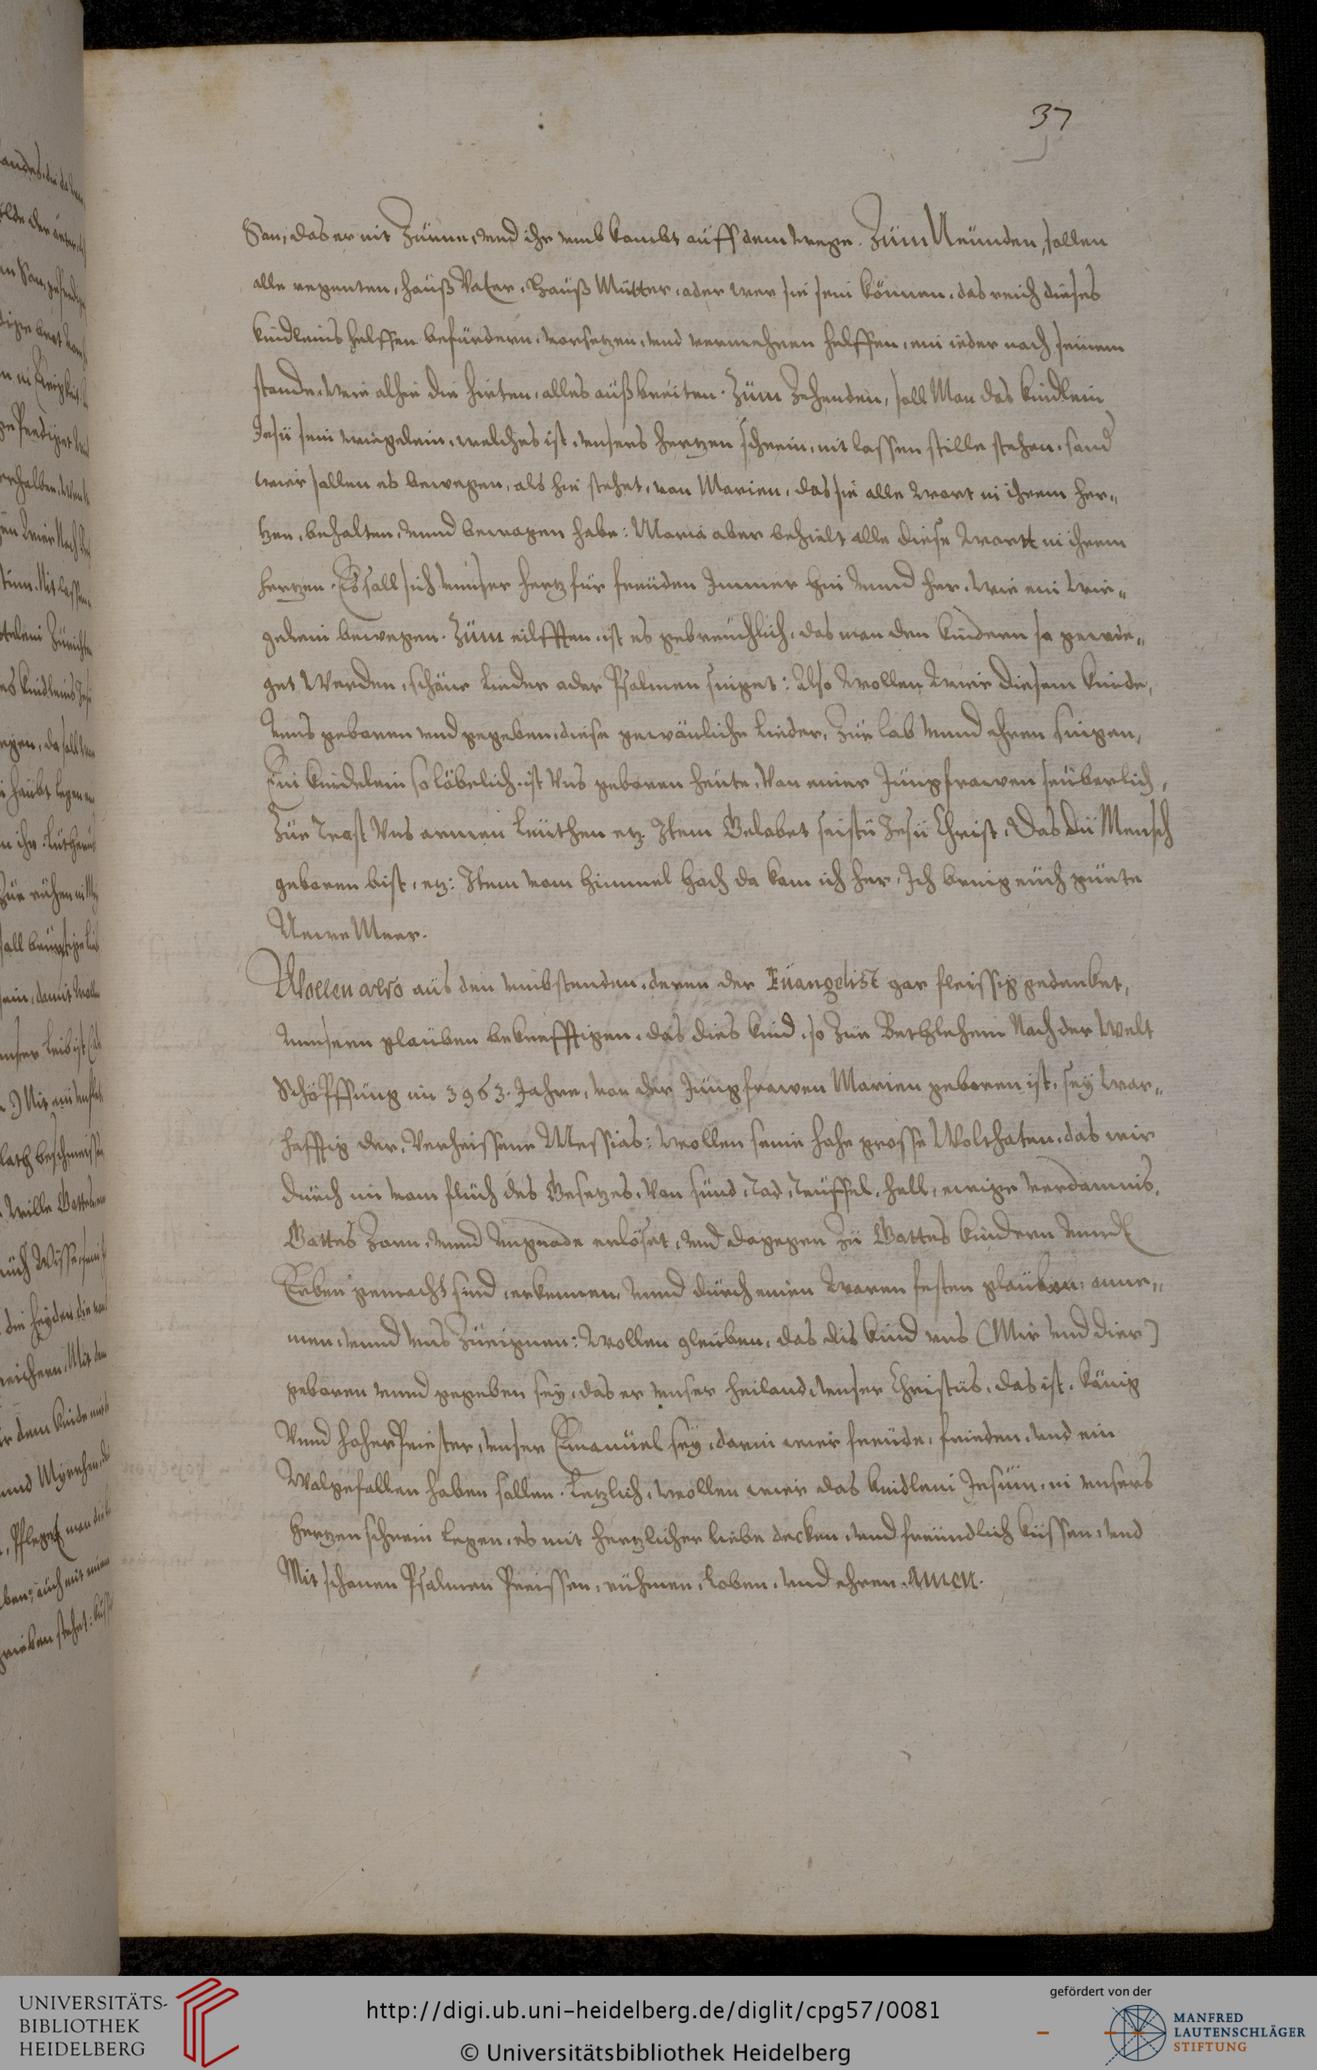 37
Son, das er nit Zürne, vnd ihr vmb kombt auff dem wege. Zum Neunden, sollen
alle regenten, hauß Vater, Hauß Mutter, oder wer sie sein können, das reich dieses
kindleins helffen befürdern, vorsetzen, vnd vermehren helffen, ein ieder nach seinem
stande, wie alhie die hirten, alles außbreiten. Zum Zehenden, soll Man das kindlein
Jesu sein wiegelein, welches ist, vnsers hertzen schrein, nit lassen stille stehen, sond
wier sollen es bewegen, als hie stehet, von Marien, das sie alle wort in ihrem her-
tzen, behalten, vnnd bewogen habe: Maria aber behielt alle diese wortt in ihrem
hertzen. Es soll sich vnser hertz für freuden Jmmer hin vnnd her, wie ein wie-
gelein bewegen. Zum eilfften, ist es gebreuchlich, das man den kindern so gewie-
get Werden, schöne Lieder oder Psalmen singet: Also wollen wier diesem kinde,
vns geboren vnd gegeben, diese gewönliche Lieder, Zur lob vnnd ehren singen,
Ein kindelein so löbelich, ist Vns geboren heute, Von einer Jungfrawen seuberlich,
Zur Trost Vns armen Leuthen etz. Jtem Gelobet seistu Jesu Christ, Das du Mensch
geboren bist, etz: Jtem vom Himmel hoch da kom ich her, Jch bring euch guete
Newe Meer.
Wollen also aus den vmbstenden, deren der Euangelist gar fleissig gedencket,
vnnsern glauben bekrefftigen, das dies kind, so Zu Bethlehem Nach der Welt
Schöpffung im 3963. Jahre, von der Jungfrawen Marien geboren ist, seÿ war-
hafftig der, Verheissene Messias: wollen seine hohe grosse Wolthaten, das wir
durch in vom fluch des Gesetzes, von sünd, Tod, Teuffel, hell, ewige verdamnis,
Gottes Zorn, vnnd vngnade erlöset, vnd dagegen Zu Gottes kindern vnnd
Erben gemacht sind, erkennen, vnnd durch einen waren festen glauben, anne-
men, vnnd vns Zueignen: wollen gleuben, das dis kind vns (Mir vnd dier)
geboren vnnd gegeben seÿ, das er vnser heiland, vnser Christus, das ist, könig
Vnnd hoher Priester, vnser Emanuel seÿ, darin wier freude, frieden, vnd ein
Wolgefallen haben sollen. Letzlich, wollen wier das kindlein Jesum, in vnsers
hertzen schrein Legen, es mit hertzlicher liebe decken, vnd freundlich küssen, vnd
Mit schonen Psalmen Preissen, rühmen, loben, vnd ehren. Amen.
UNIVERSITÄTS-
BIBLIOTHEK
HEIDELBERG
http://digi.ub.uni-heidelberg.de/diglit/cpg57/0081
© Universitätsbibliothek Heidelberg
gefördert von der
MANFRED
LAUTENSCHLÄGER
STIFTUNG